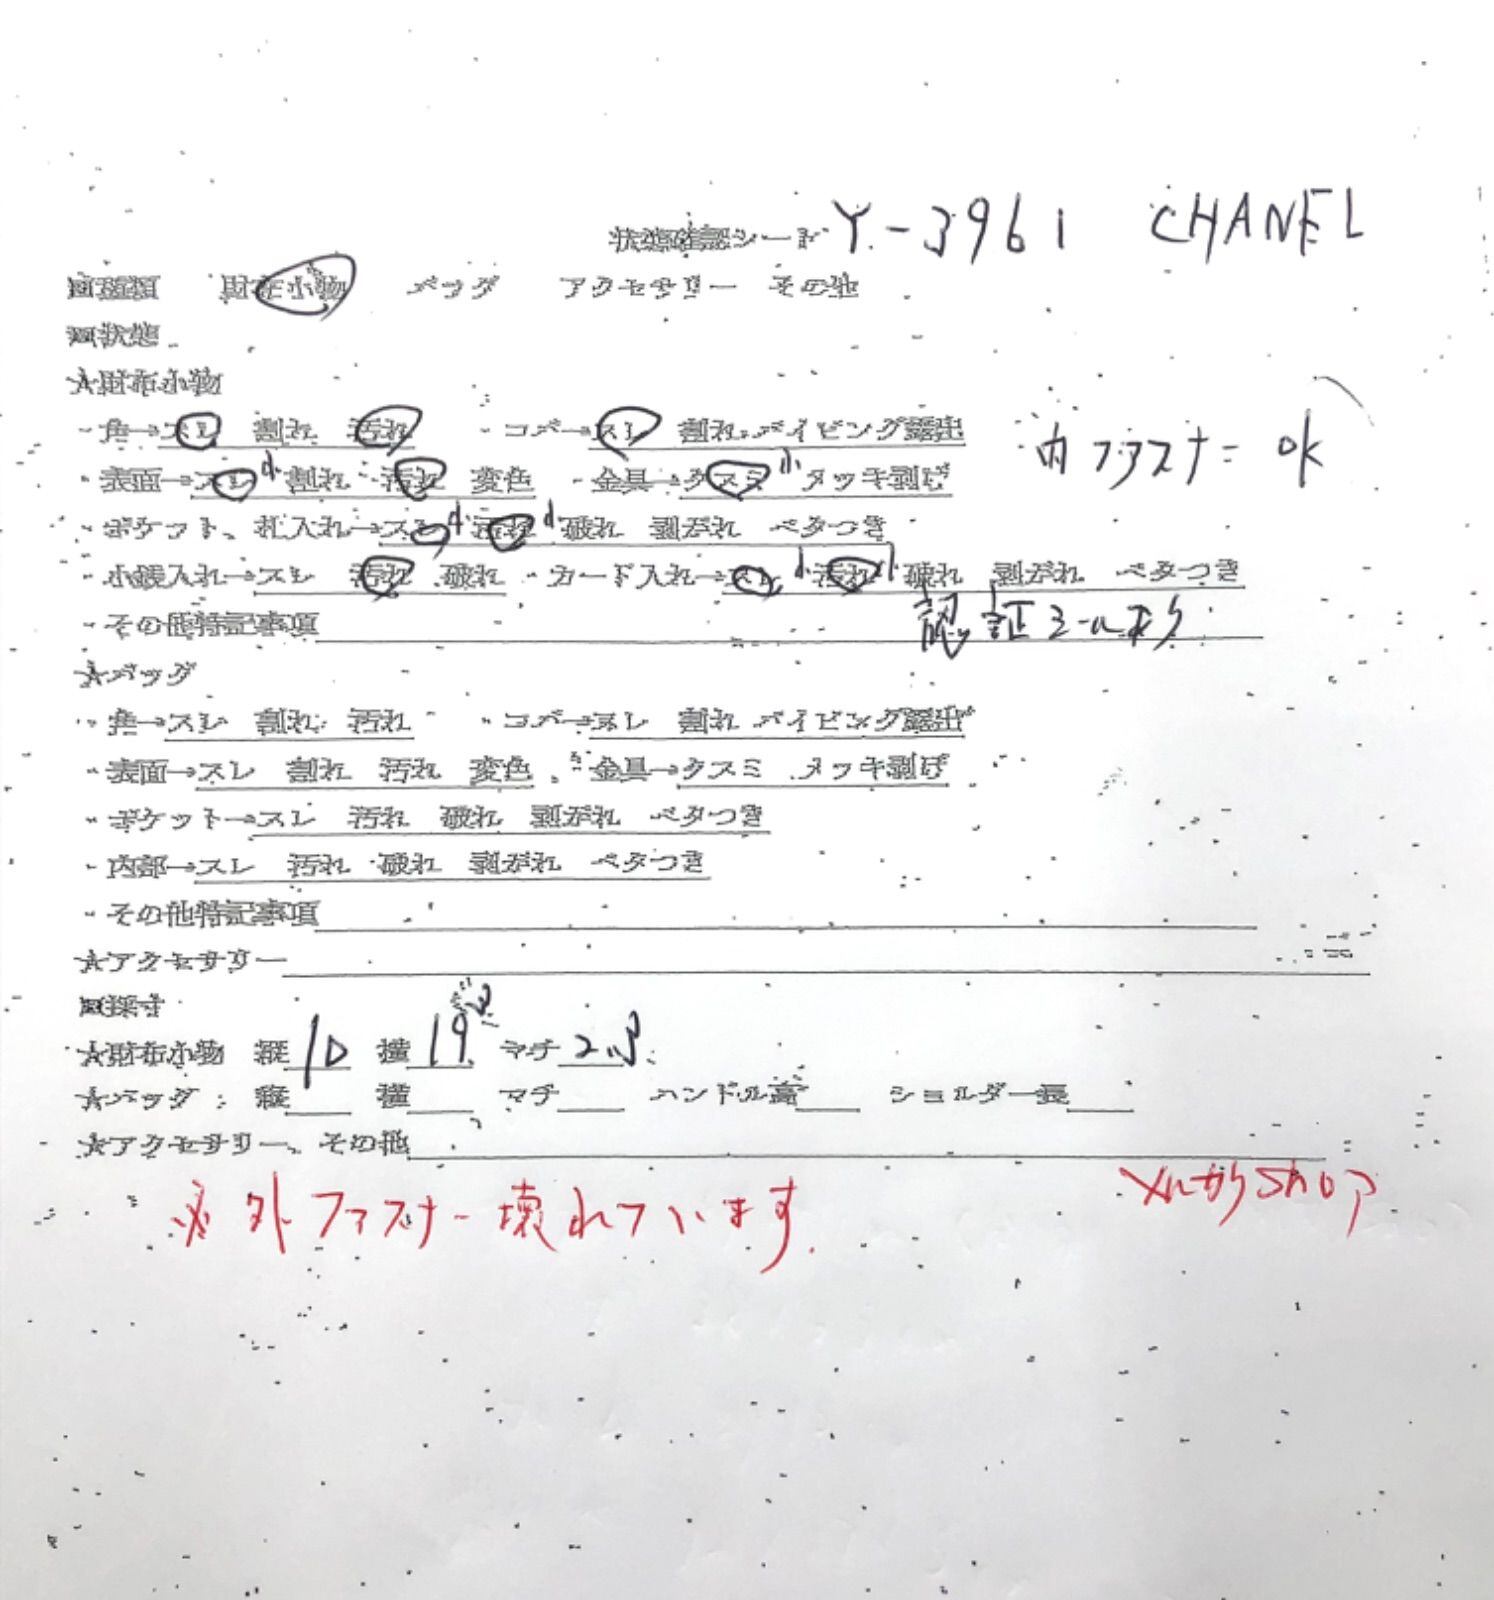 状態確認シート Y-3961 CHANEL
財布小物 バッグ アクセサリー その他
■状態
★財布小物
・角→スレ 割れ 汚れ ・コバ→スレ 割れ パイピング露出
内ファスナー OK
・表面→スレ 小 割れ 汚れ 変色 ・金具→クスミ 小 メッキ剥げ
・ポケット、札入れ→スレ 小 汚れ 小 破れ 剥がれ ベタつき
・小銭入れ→スレ 汚れ 破れ ・カード入れ→スレ 小 汚れ 小 破れ 剥がれ ベタつき
・その他特記事項 認証シール
★バッグ
・角→スレ 割れ 汚れ ・コバ→スレ 割れ パイピング露出
・表面→スレ 割れ 汚れ 変色 ・金具→クスミ メッキ剥げ
・ポケット→スレ 汚れ 破れ 剥がれ ベタつき
・内部→スレ 汚れ 破れ 剥がれ ベタつき
・その他特記事項
★アクセサリー
■採寸
★財布小物 縦 10 横 19 マチ
★バッグ 縦 横 マチ ハンドル高 ショルダー長
★アクセサリー、その他
メルカリShop
※外ファスナー壊れています